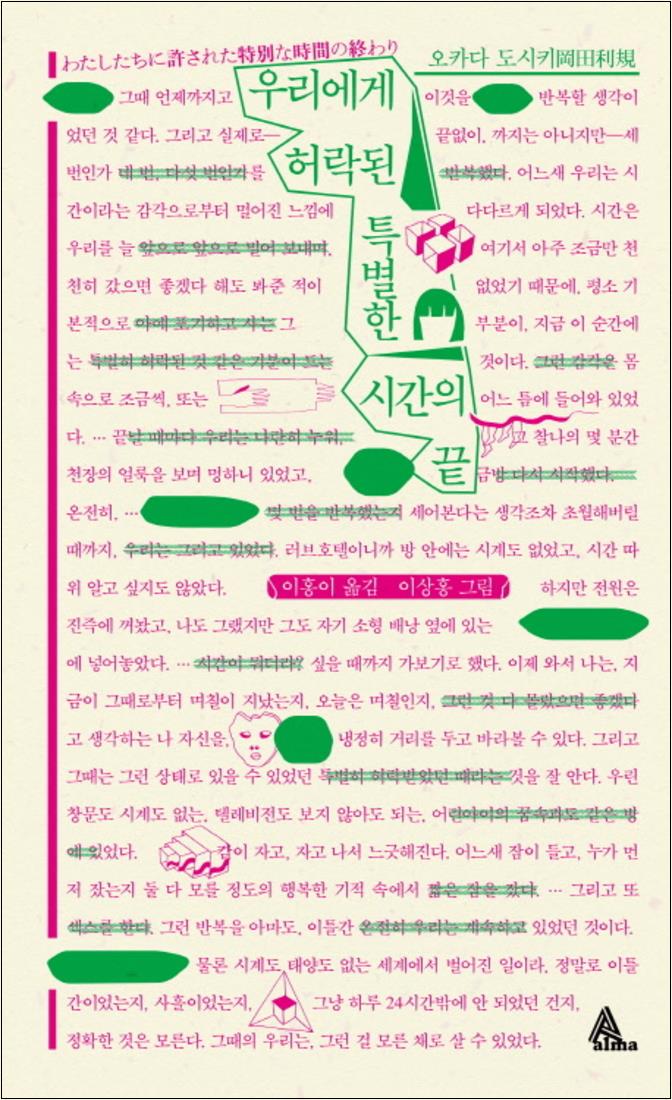 わたしたちに許された特別な時間の終わり
오카다 도시키岡田利規
우리에게
허락된
특별한
시간의
끝
그때 언제까지고 이것을 반복할 생각이
었던 것 같다. 그리고 실제로— 끝없이, 까지는 아니지만—세
번인가 네 번, 다섯 번인가를 반복했다. 어느새 우리는 시
간이라는 감각으로부터 멀어진 느낌에 다다르게 되었다. 시간은
우리를 늘 앞으로 앞으로 밀어 보내며, 여기서 아주 조금만 천
천히 갔으면 좋겠다 해도 봐준 적이 없었기 때문에, 평소 기
본적으로 아예 포기하고 사는 그 부분이, 지금 이 순간에
는 특별히 허락된 것 같은 기분이 드는 것이다. 그런 감각은 몸
속으로 조금씩, 또는 어느 틈에 들어와 있었
다. … 끝날 때마다 우리는 나란히 누워, 그 찰나의 몇 분간
천장의 얼룩을 보며 멍하니 있었고, 금방 다시 시작했다.
온전히, … 몇 번을 반복했는지 세어본다는 생각조차 초월해버릴
때까지, 우리는 그러고 있었다. 러브호텔이니까 방 안에는 시계도 없었고, 시간 따
위 알고 싶지도 않았다. 이홍이 옮김 이상홍 그림 하지만 전원은
진즉에 꺼놨고, 나도 그랬지만 그도 자기 소형 배낭 옆에 있는
에 넣어놓았다. … 시간이 뭐더라? 싶을 때까지 가보기로 했다. 이제 와서 나는, 지
금이 그때로부터 며칠이 지났는지, 오늘은 며칠인지, 그런 것 다 몰랐으면 좋겠다
고 생각하는 나 자신을, 냉정히 거리를 두고 바라볼 수 있다. 그리고
그때는 그런 상태로 있을 수 있었던 특별히 허락받았던 때라는 것을 잘 안다. 우린
창문도 시계도 없는, 텔레비전도 보지 않아도 되는, 어린아이의 꿈속과도 같은 방
에 있었다. 같이 자고, 자고 나서 느긋해진다. 어느새 잠이 들고, 누가 먼
저 잤는지 둘 다 모를 정도의 행복한 기적 속에서 짧은 잠을 잤다. … 그리고 또
섹스를 한다. 그런 반복을 아마도, 이틀간 온전히 우리는 계속하고 있었던 것이다.
물론 시계도 태양도 없는 세계에서 벌어진 일이라, 정말로 이틀
간이었는지, 사흘이었는지, 그냥 하루 24시간밖에 안 되었던 건지,
정확한 것은 모른다. 그때의 우리는, 그런 걸 모른 채로 살 수 있었다.
alma